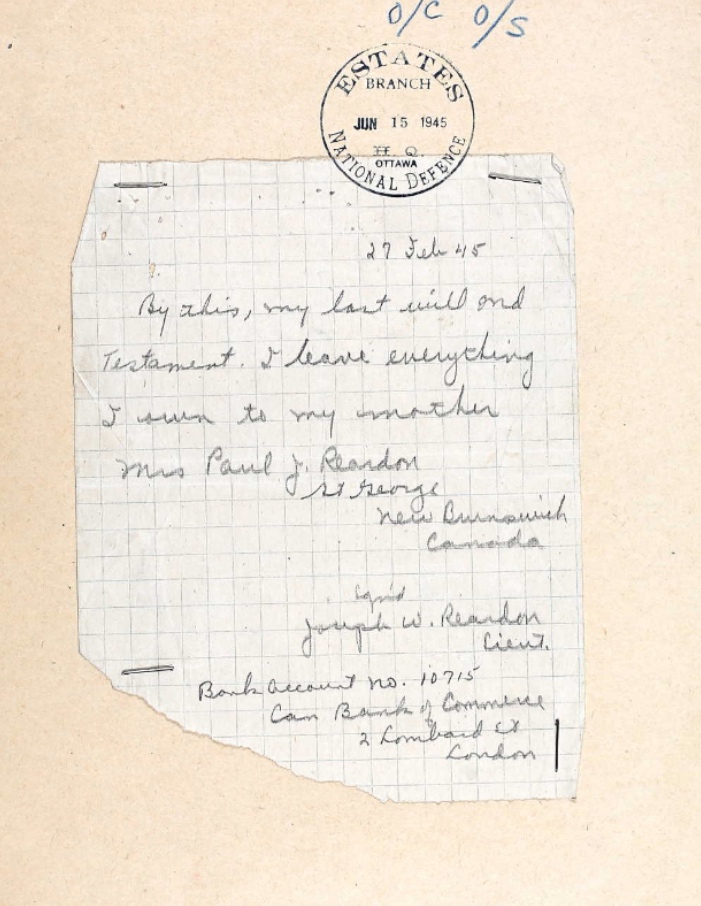 O/C O/S
ESTATES
BRANCH
JUN 15 1945
H. Q.
OTTAWA
NATIONAL DEFENCE
27 Feb 45
By this, my last will and
Testament. I leave everything
I own to my mother
Mrs Paul J. Reardon
St George
New Brunswick
Canada
Joseph W. Reardon
Lieut.
Bank Account no. 10715
Can Bank of Commerce
2 Lombard St
London